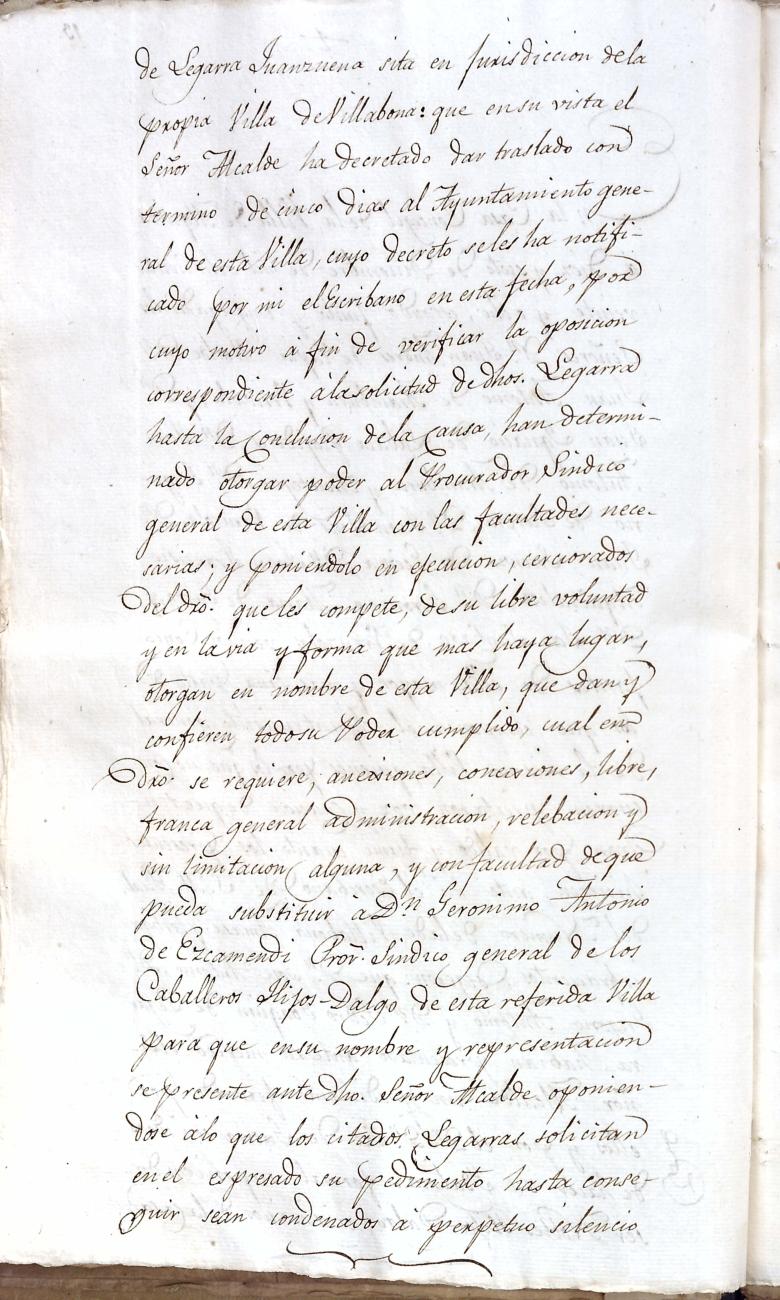 de Legarra Juanzuena sita en Jurisdiccion dela
propia Villa deVillabona: que ensu vista el
Señor Alcalde ha decretado dar traslado con
termino de cinco dias al Ayuntamiento gene-
ral de esta Villa, cuyo decreto seles ha notifi-
cado por mi elEscribano en esta fecha, por
cuyo motivo á fin de verificar la oposicion
correspondiente álasolicitud de dhos. Legarra
hasta la Conclusion dela Causa, han determi-
nado otorgar poder al Procurador Sindico
general de esta Villa con las facultades nece-
sarias; y poniendolo en ejecucion, cerciorados
del dro. que les compete, desu libre voluntad
y en lavia y forma que mas haya lugar,
otorgan en nombre de esta Villa, que dan y
confieren todosu Poder cumplido, cual en
dro. se requiere, anecsiones, conecsiones, libre,
franca general administracion, relebacion y
sin limitacion alguna, y con facultad deque
pueda substituir á Dn Geronimo Antonio
de Ezcamendi Pror. Sindico general de los
Caballeros Hijos-Dalgo de esta referida Villa
para que ensu nombre y representacion
se presente ante dho. Señor Alcalde oponien-
dose álo que los citados Legarras solicitan
enel espresado su pedimento hasta conse-
guir sean condenados á perpetuo silencio